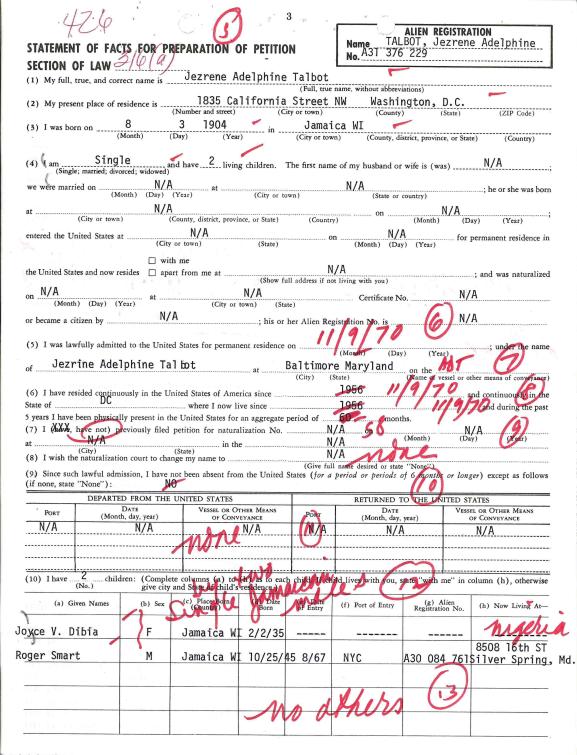 3
426
(5)
STATEMENT OF FACTS FOR PREPARATION OF PETITION
SECTION OF LAW 316(a)
ALIEN REGISTRATION
Name TALBOT, Jezrene Adelphine
No. A31 376 229
(1) My full, true, and correct name is Jezrene Adelphine Talbot
(Full, true name, without abbreviations)
(2) My present place of residence is 1835 California Street NW Washington, D.C.
(Number and street) (City or town) (County) (State) (ZIP Code)
(3) I was born on 8 3 1904 in Jamaica WI
(Month) (Day) (Year) (City or town) (County, district, province, or State) (Country)
(4) I am Single and have 2 living children. The first name of my husband or wife is (was) N/A
(Single; married; divorced; widowed)
we were married on N/A at N/A ; he or she was born
(Month) (Day) (Year) (City or town) (State or country)
at N/A on N/A ;
(City or town) (County, district, province, or State) (Country) (Month) (Day) (Year)
entered the United States at N/A on N/A for permanent residence in
(City or town) (State) (Month) (Day) (Year)
with me
the United States and now resides apart from me at N/A ; and was naturalized
(Show full address if not living with you)
on N/A at N/A Certificate No. N/A
(Month) (Day) (Year) (City or town) (State)
or became a citizen by N/A ; his or her Alien Registration No. is N/A
(6)
(5) I was lawfully admitted to the United States for permanent residence on 11/9/70 ; under the name
(Month) (Day) (Year)
(7)
of Jezrine Adelphine Talbot at Baltimore Maryland on the
(City) (State) (Name of vessel or other means of conveyance)
(6) I have resided continuously in the United States of America since 1956 11/9/70 and continuously in the
State of DC where I now live since 1956 11/9/70 and during the past
5 years I have been physically present in the United States for an aggregate period of 60 58 months.
(7) I (XXX, have not) previously filed petition for naturalization No. N/A N/A
(Month) (Day) (Year)
(9)
at N/A in the N/A
(City) (State)
(8) I wish the naturalization court to change my name to N/A none
(Give full name desired or state "None")
(9) Since such lawful admission, I have not been absent from the United States (for a period or periods of 6 months or longer) except as follows
(if none, state "None"): NO
(10)
DEPARTED FROM THE UNITED STATES RETURNED TO THE UNITED STATES
PORT DATE (Month, day, year) VESSEL OR OTHER MEANS OF CONVEYANCE PORT DATE (Month, day, year) VESSEL OR OTHER MEANS OF CONVEYANCE
N/A N/A N/A N/A N/A N/A
none
(10) I have 2 children: (Complete columns (a) to (h) as to each child. If child lives with you, state "with me" in column (h), otherwise
(No.) give city and State of child's residence.)
single Jamaican males
(a) Given Names (b) Sex (c) Place Born (Country) (d) Date Born (e) Date of Entry (f) Port of Entry (g) Alien Registration No. (h) Now Living At—
Joyce V. Dibia F Jamaica WI 2/2/35 ----- ----- ----- nigeria
8508 16th ST
Roger Smart M Jamaica WI 10/25/45 8/67 NYC A30 084 761 Silver Spring, Md.
(13)
no others